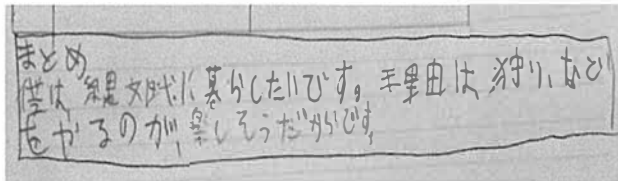 まとめ
僕は、縄文時代に暮らしたいです。理由は、狩り、など
をやるのが、楽しそうだからです。